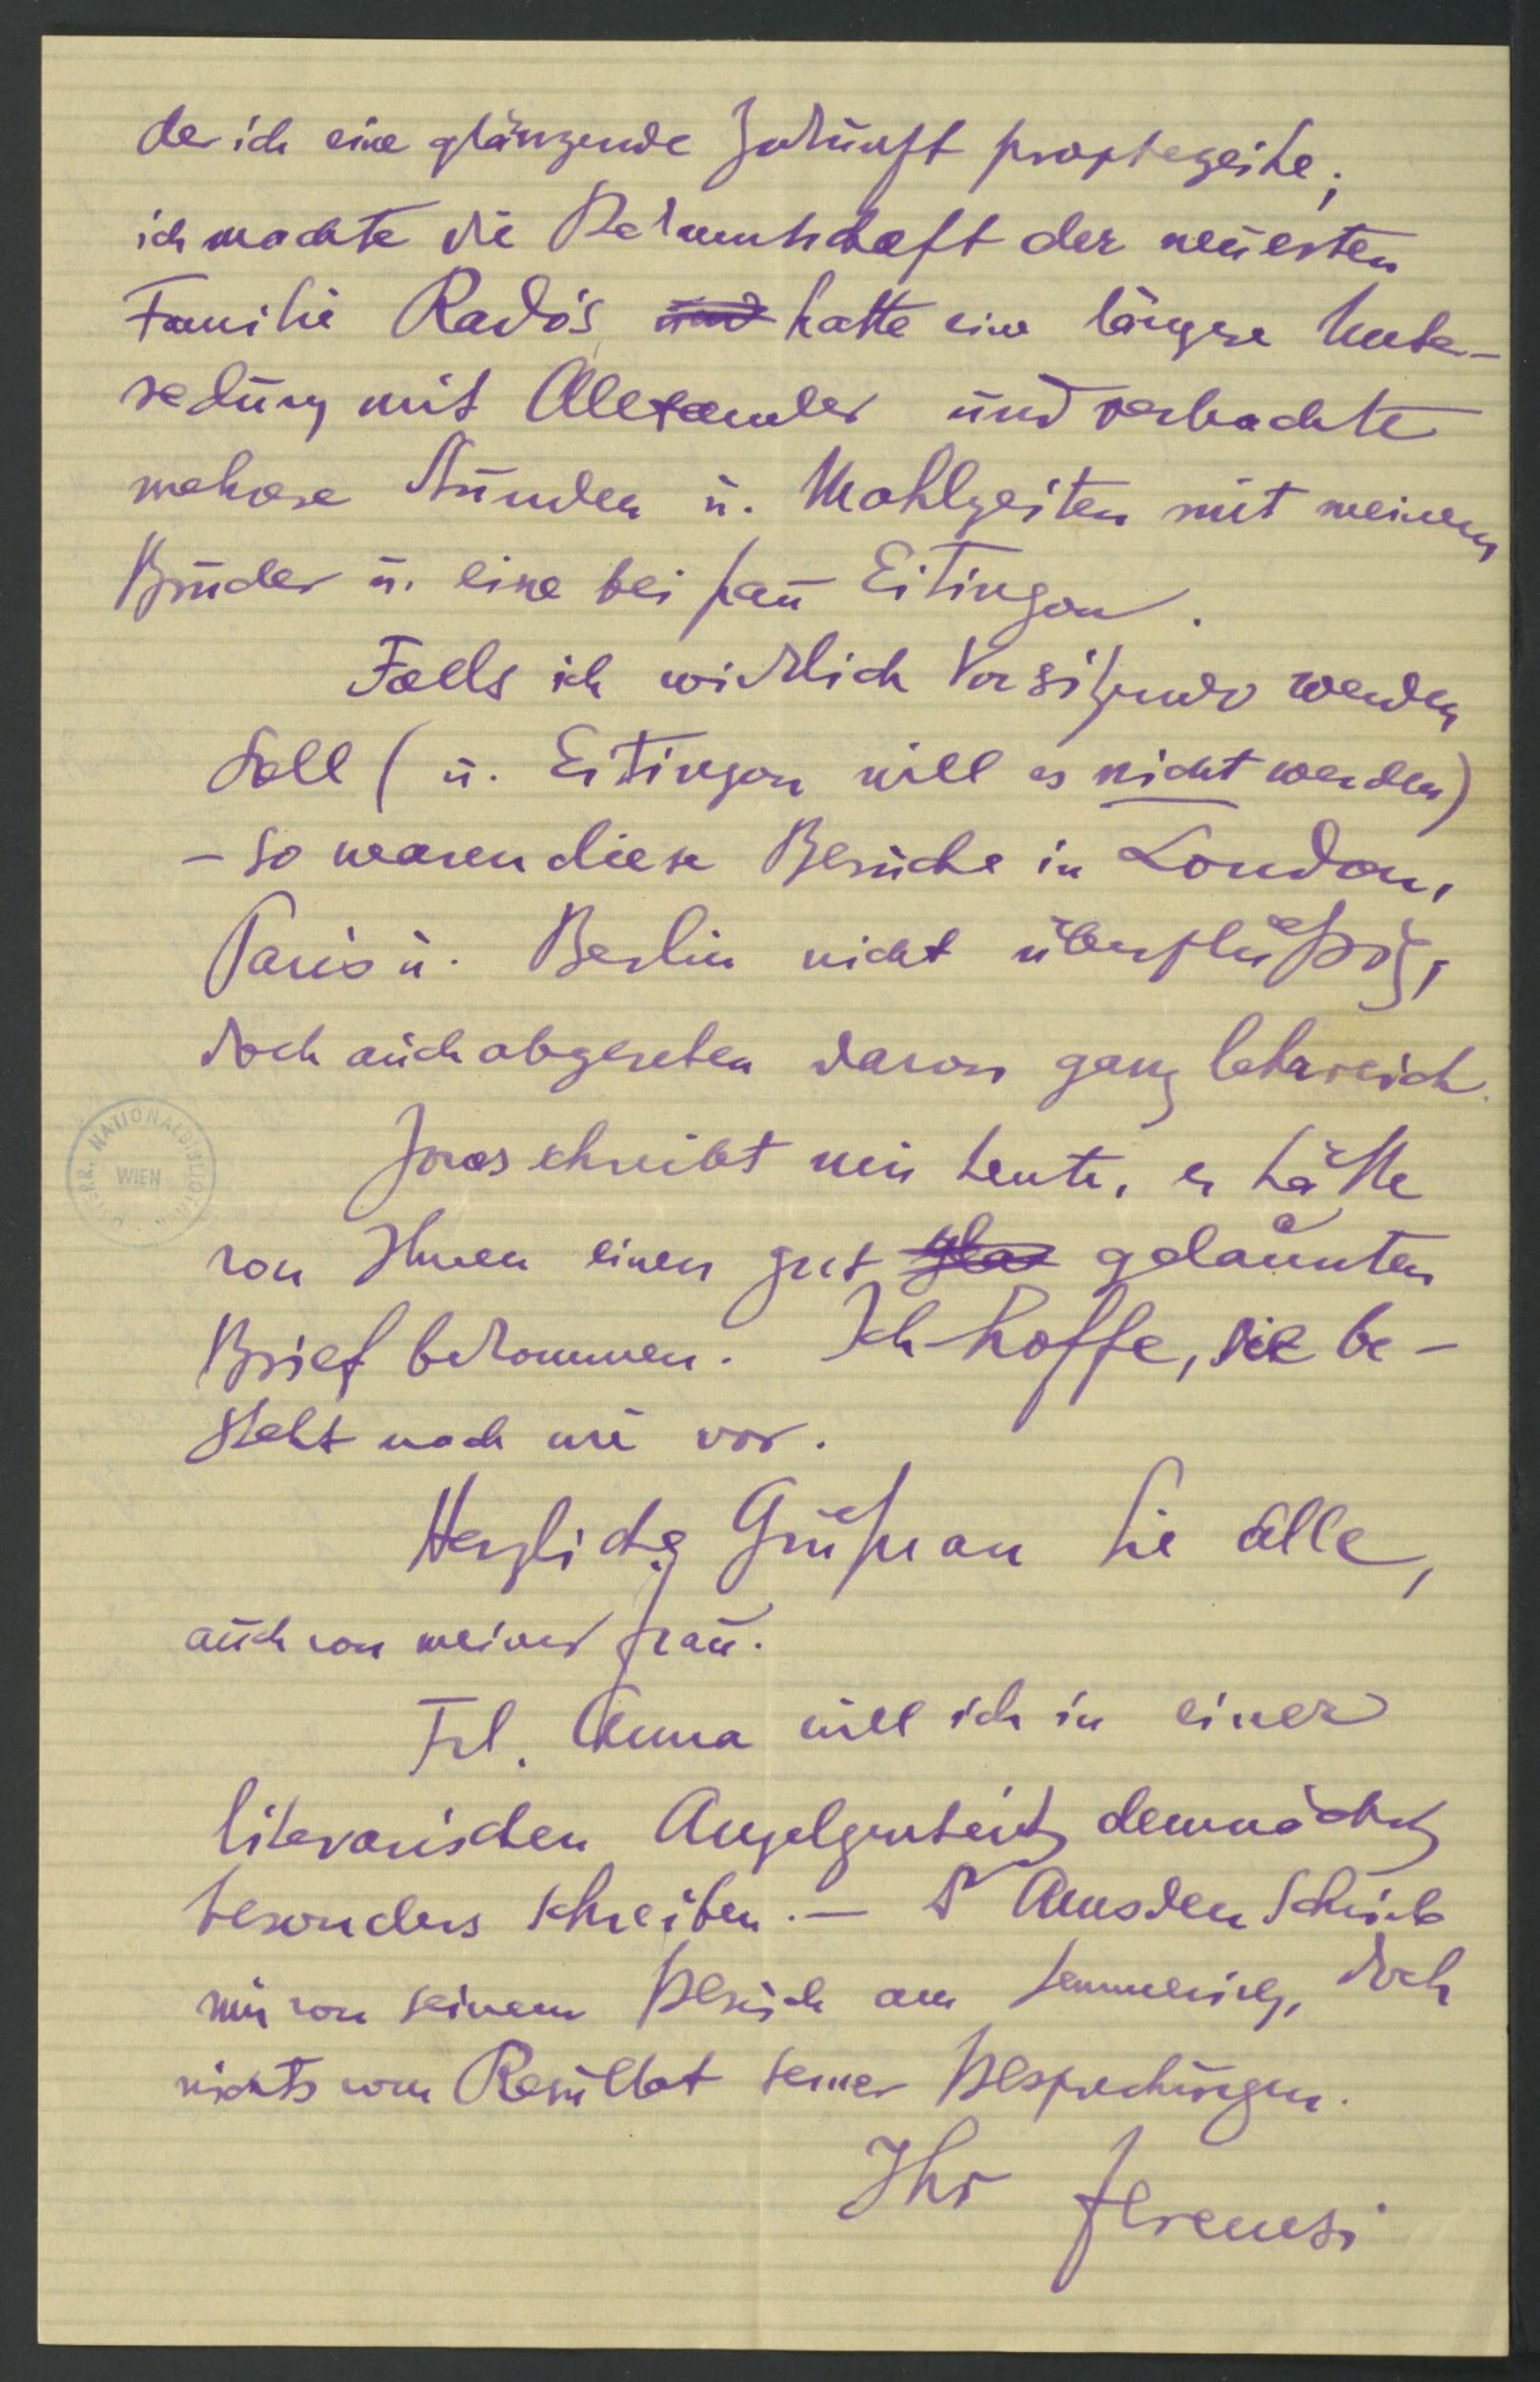 der ich eine glänzende Zukunft prophezeihe;
ich machte die Bekanntschaft der neuesten
Familie Radó's, und hatte eine längere Unter-
redung mit Alexander und verbrachte
mehrere Stunden u. Mahlzeiten mit meinem
Bruder u. eine bei Frau Eitingon.
Falls ich wirklich Vorsitzender werden
soll (u. Eitingon will es nicht werden)
– so waren diese Besuche in London,
Paris u. Berlin nicht überflüßig,
doch auch abgesehen davon ganz lehrreich.
Jones schreibt mir heute, er hätte
von Ihnen einen gut gelaunten
Brief bekommen. Ich hoffe, sie be-
steht nach wie vor.
Herzliche Grüße an Sie alle,
auch von meiner Frau.
Frl. Anna will ich in einer
literarischen Angelegenheit demnächst
besonders schreiben. – Amsden schrieb
mir von seinem Besuch am Semmering, doch
nichts vom Resultat seiner Besprechungen.
Ihr Ferenczi
ÖSTERR. NATIONALBIBLIOTHEK WIEN